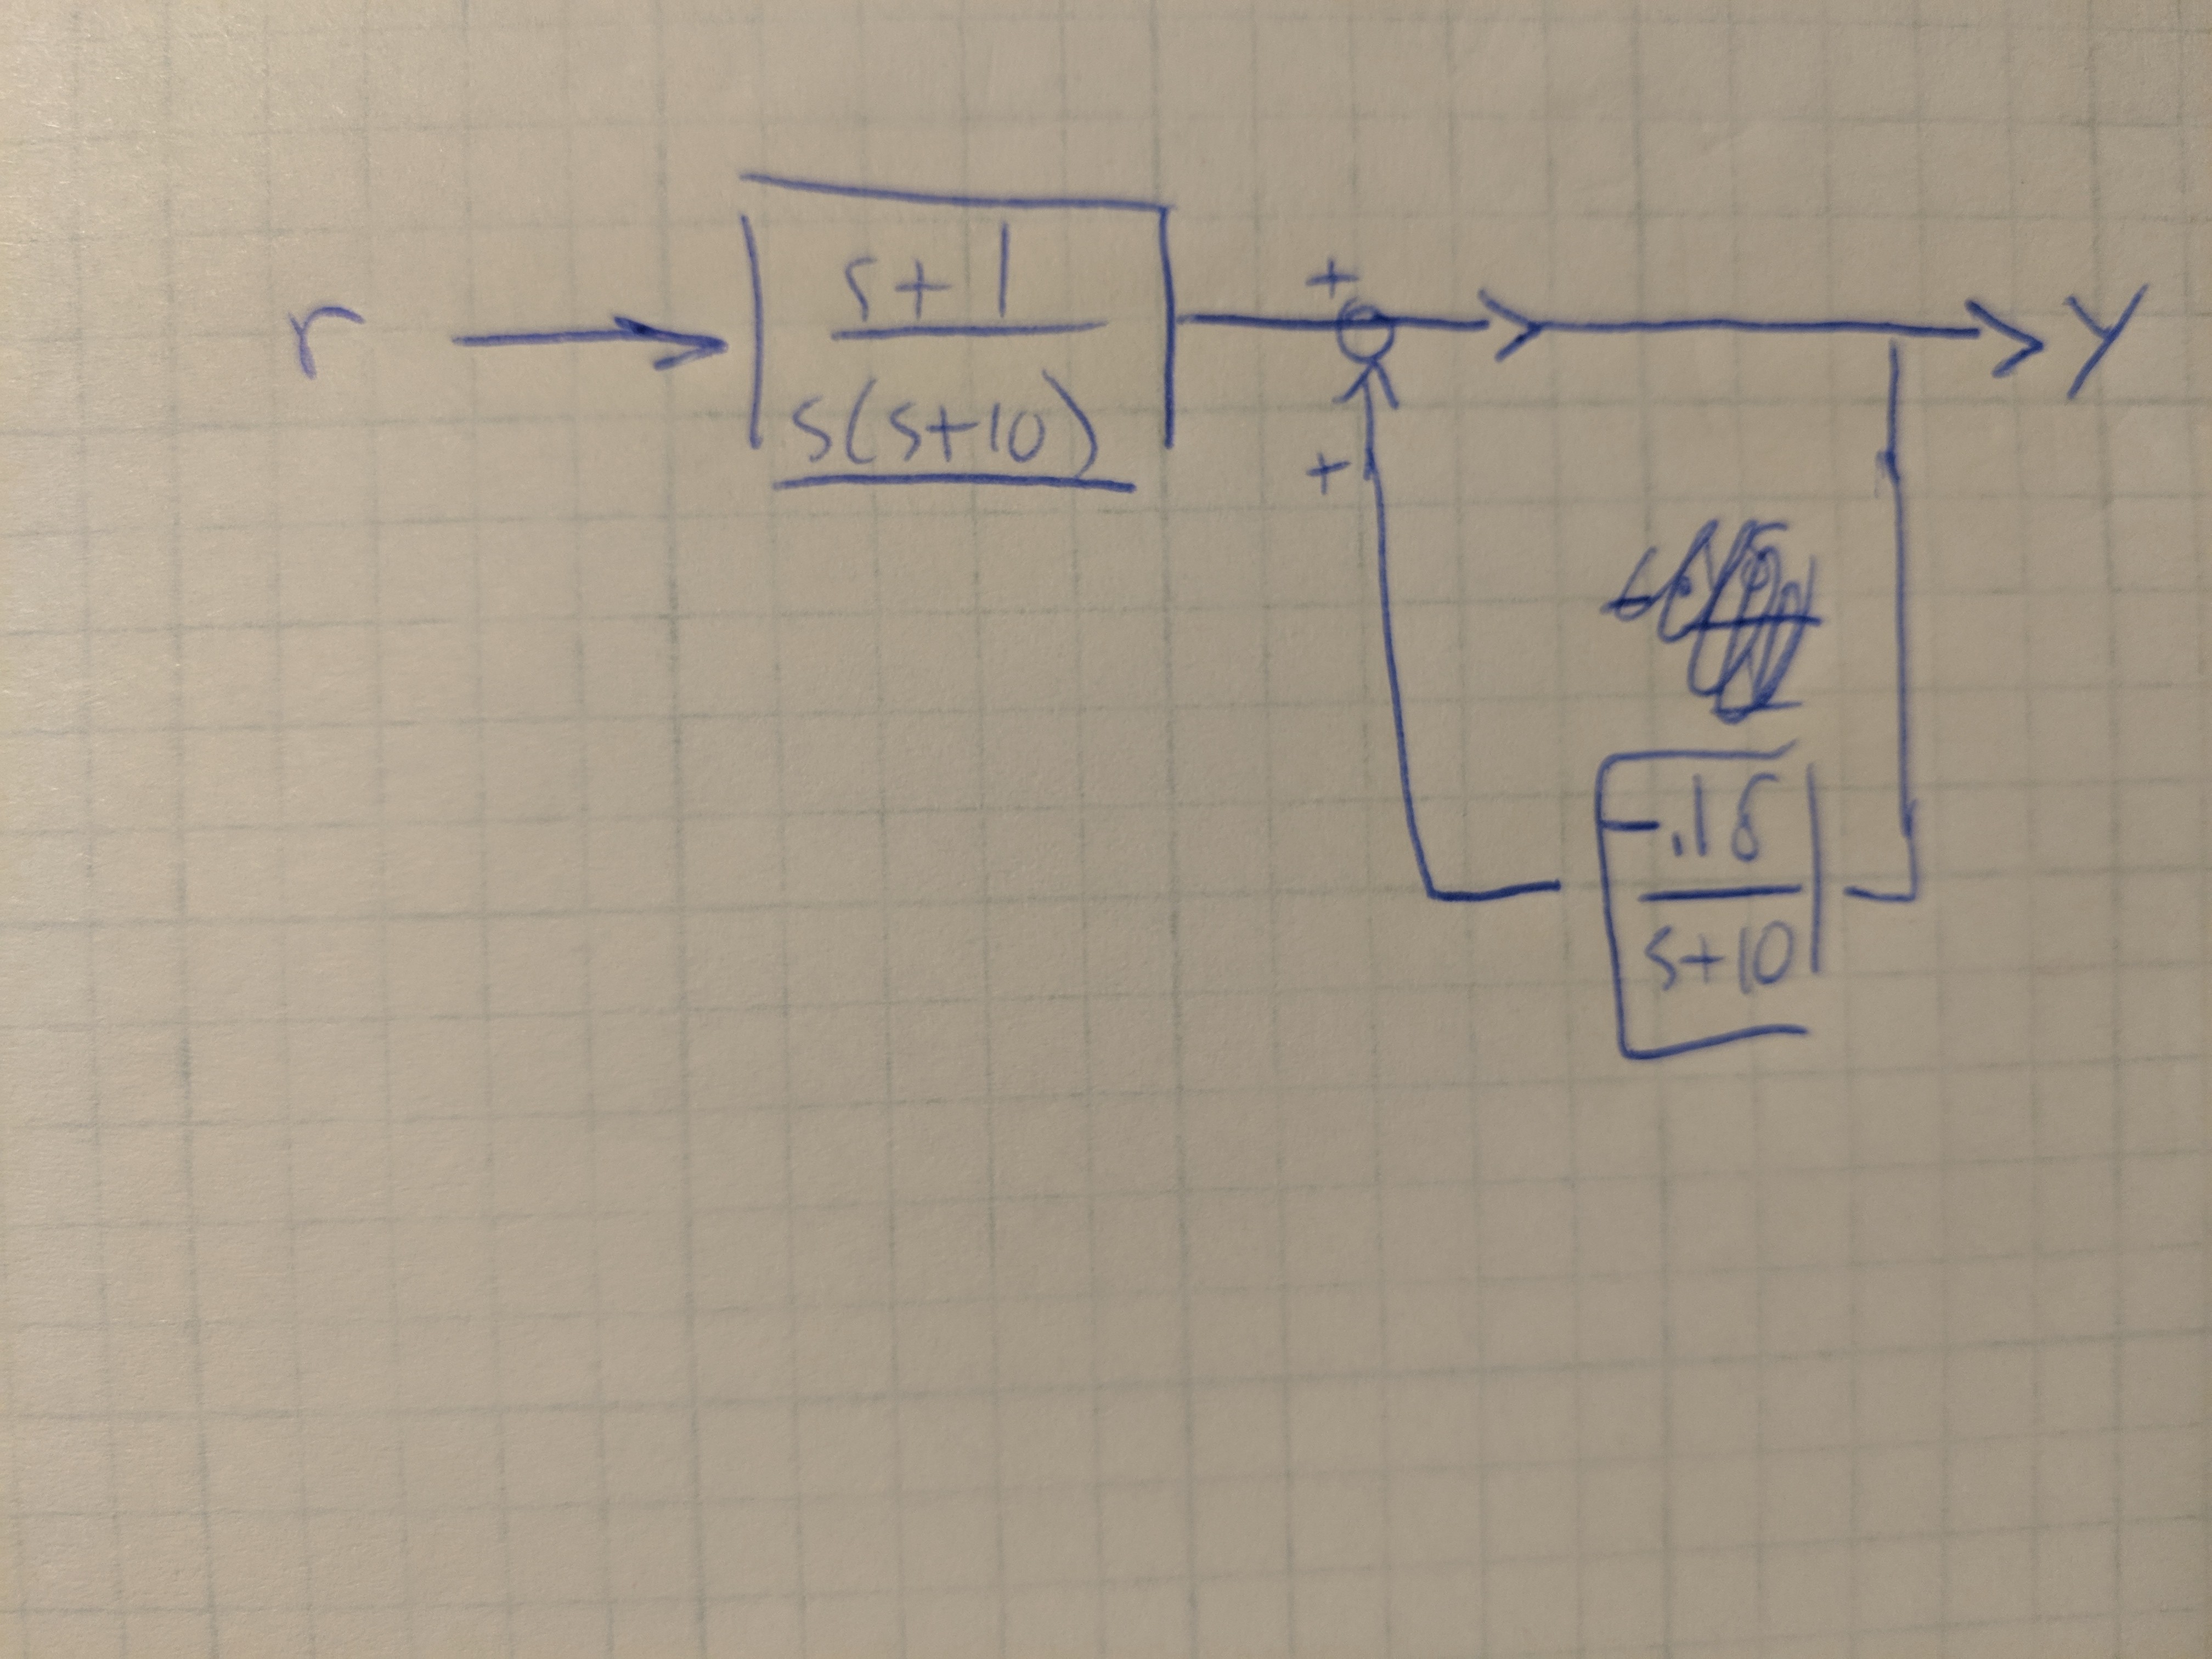 r
s+1
s(s+10)
+
+
y
-.18
s+10